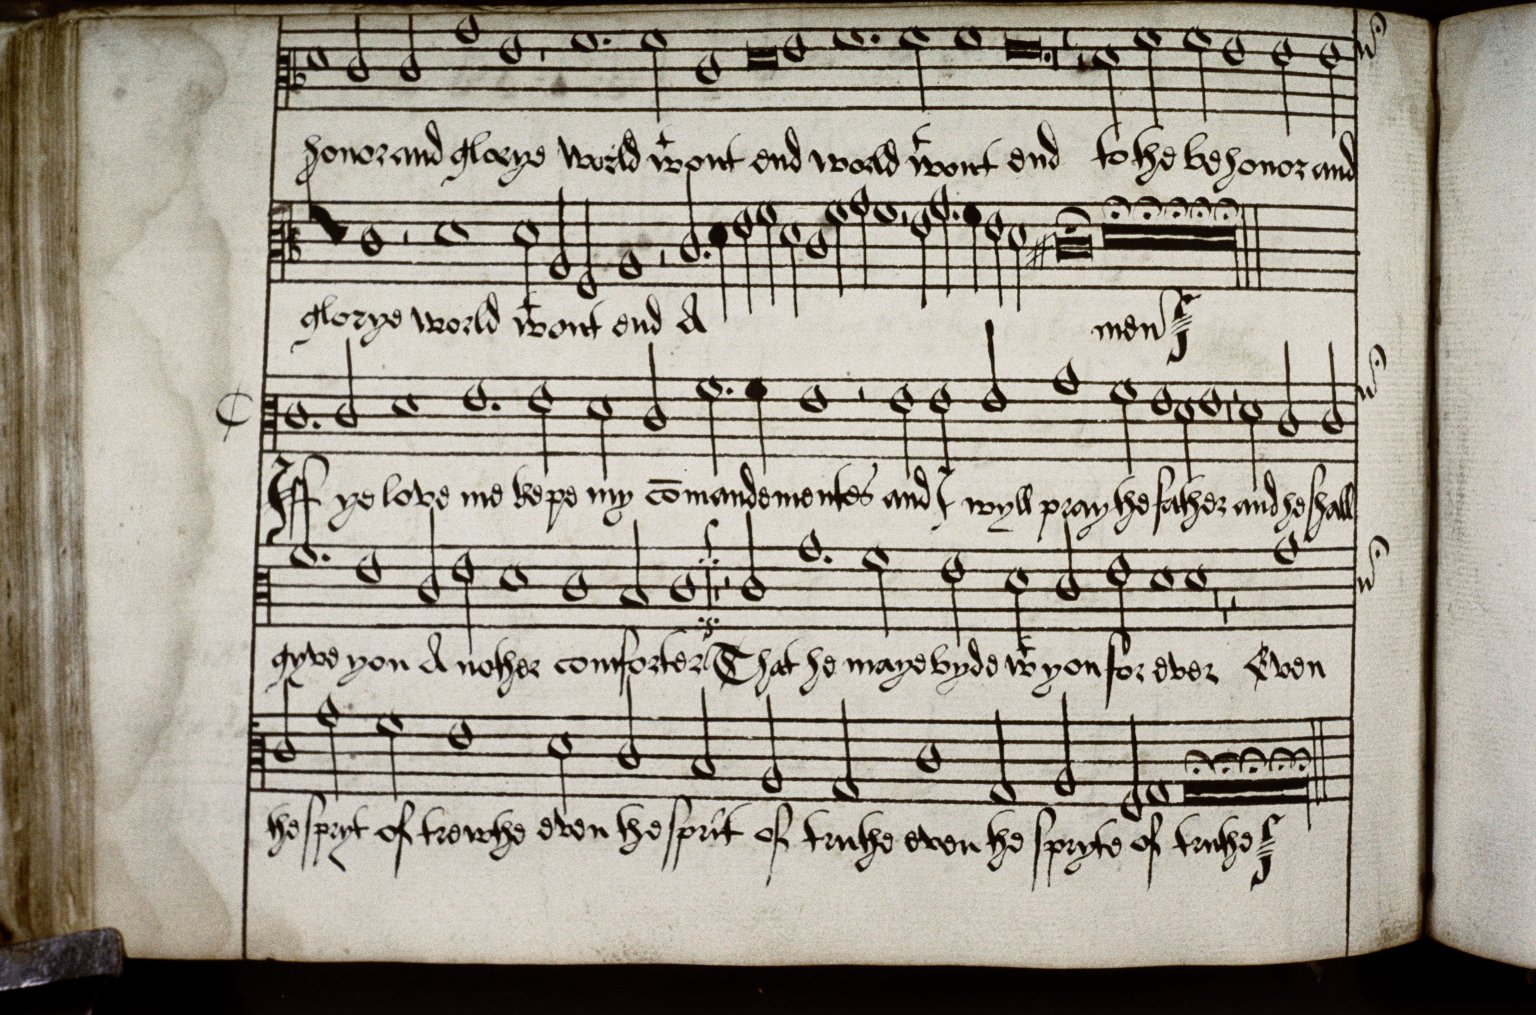 honor and glorye world wᵗowt end world wᵗowt end to the be honor and
glorye world wᵗowt end A men
Iff ye love me kepe my cōmandementes and I wyll pray the father and he shall
gyve you A nother comforter That he maye byde wᵗ you for ever Even
the spryt of trewthe even the sprit of truthe even the spryte of truthe